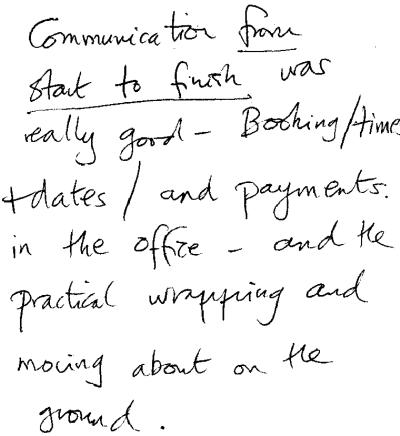 Communication from
start to finish was
really good - Booking/times
+dates / and payments.
in the office - and the
practical wrapping and
moving about on the
ground.